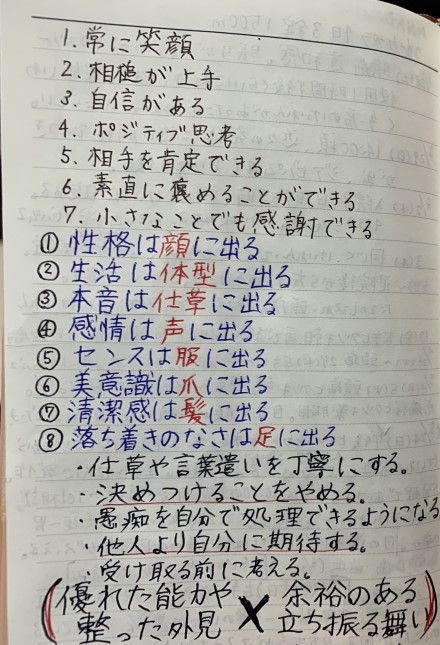 1. 常に笑顔
2. 相槌が上手
3. 自信がある
4. ポジティブ思考
5. 相手を肯定できる
6. 素直に褒めることができる
7. 小さなことでも感謝できる
① 性格は顔に出る
② 生活は体型に出る
③ 本音は仕草に出る
④ 感情は声に出る
⑤ センスは服に出る
⑥ 美意識は爪に出る
⑦ 清潔感は髪に出る
⑧ 落ち着きのなさは足に出る
・仕草や言葉遣いを丁寧にする。
・決めつけることをやめる。
・愚痴を自分で処理できるようになる
・他人より自分に期待する。
・受け取る前に考える。
(優れた能力や整った外見 × 余裕のある立ち振る舞い)